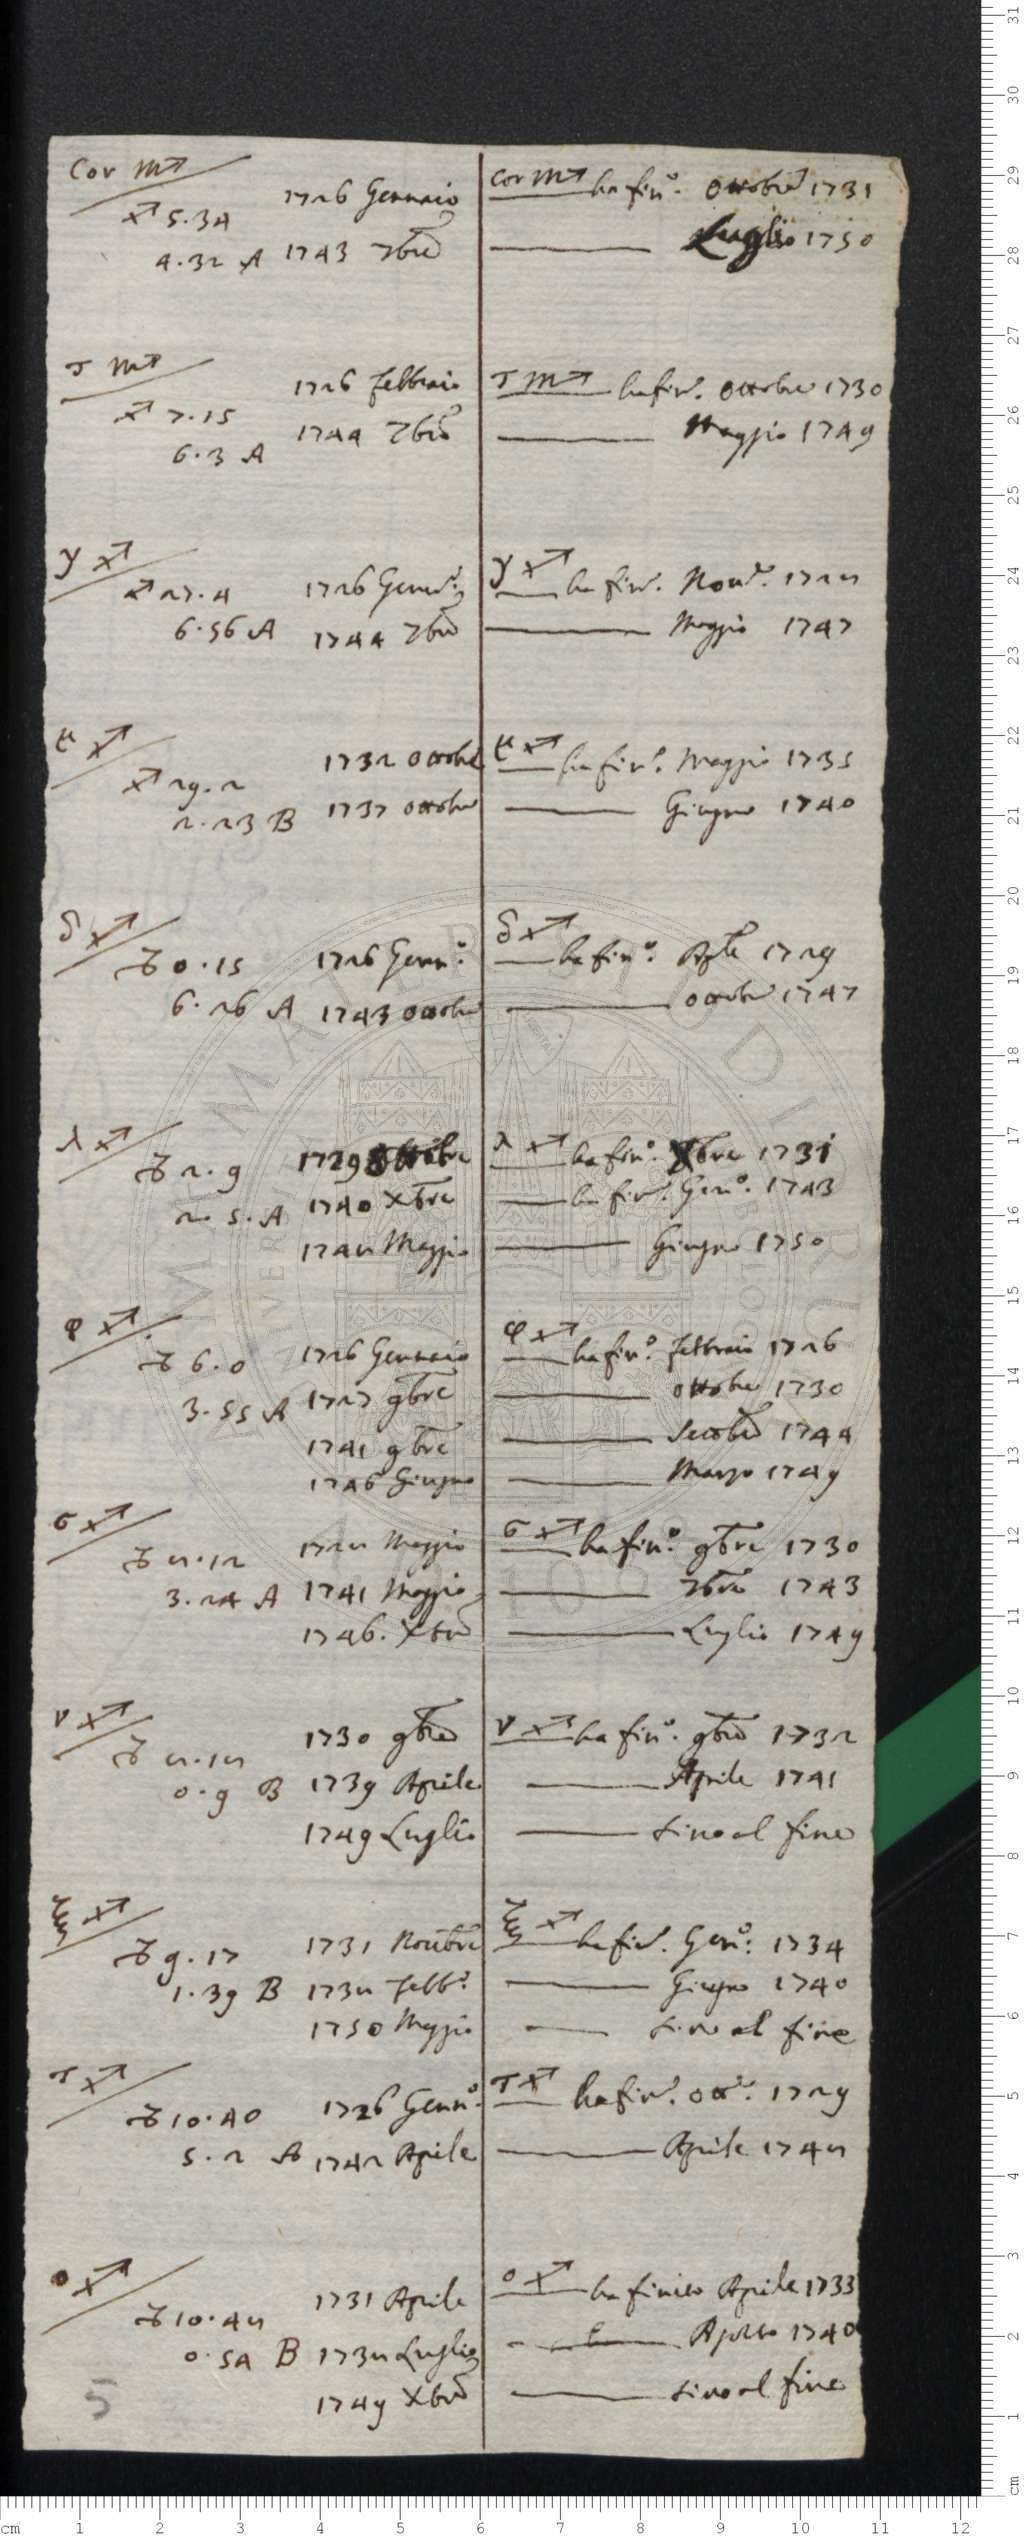 Cor ♏ Cor ♏ ha fin.º Ottobre 1731
♐ 5.34 1726 Gennaio
4.32 A 1743 7bre Luglio 1750
τ ♏ 1726 Febbraio τ ♏ ha fin.º Ottobre 1730
♐ 7.15 1744 7bre Maggio 1749
6.3 A
γ ♐ γ ♐
♐ 27.4 1726 Genn.º ha fin.º Nov.e 1728
6.56 A 1744 7bre Maggio 1747
μ ♐ 1732 Ottobre μ ♐ ha fin.º Maggio 1735
♐ 29.2
2.23 B 1737 Ottobre Giugno 1740
δ ♐ δ ♐
♑ 0.15 1726 Genn.º ha fin.º Aple 1729
6.26 A 1743 Ottobre Ottobre 1747
λ ♐ λ ♐
♑ 2.9 1729 Ottobre ha fin.º Xbre 1731
2.5.A 1740 Xbre ha fin.º Gen.º 1743
1748 Maggio Giugno 1750
φ ♐ φ ♐
♑ 6.0 1726 Gennaio ha fin.º Febbraio 1726
3.55 A 1727 9bre Ottobre 1730
1741 9bre Settobre 1744
1746 Giugno Marzo 1749
σ ♐ σ ♐
♑ 8.12 1728 Maggio ha fin.º 9bre 1730
3.24 A 1741 Maggio 7bre 1743
1746. Xbre Luglio 1749
ν ♐ ν ♐
♑ 8.18 1730 9bre ha fin.º 9bre 1732
0.9 B 1739 Aprile Aprile 1741
1749 Luglio sino al fine
ξ ♐ ξ ♐
♑ 9.17 1731 Novbre ha fin.º Gen.º 1734
1.39 B 1738 Febb.º Giugno 1740
1750 Maggio sino al fine
τ ♐ τ ♐
♑ 10.40 1726 Genn.º ha fin.º Ott.e 1729
5.2 A 1742 Aprile Aprile 1748
ο ♐ ο ♐
♑ 10.48 1731 Aprile ha finito Aprile 1733
0.54 B 1738 Luglio Agosto 1740
1749 Xbre sino al fine
5